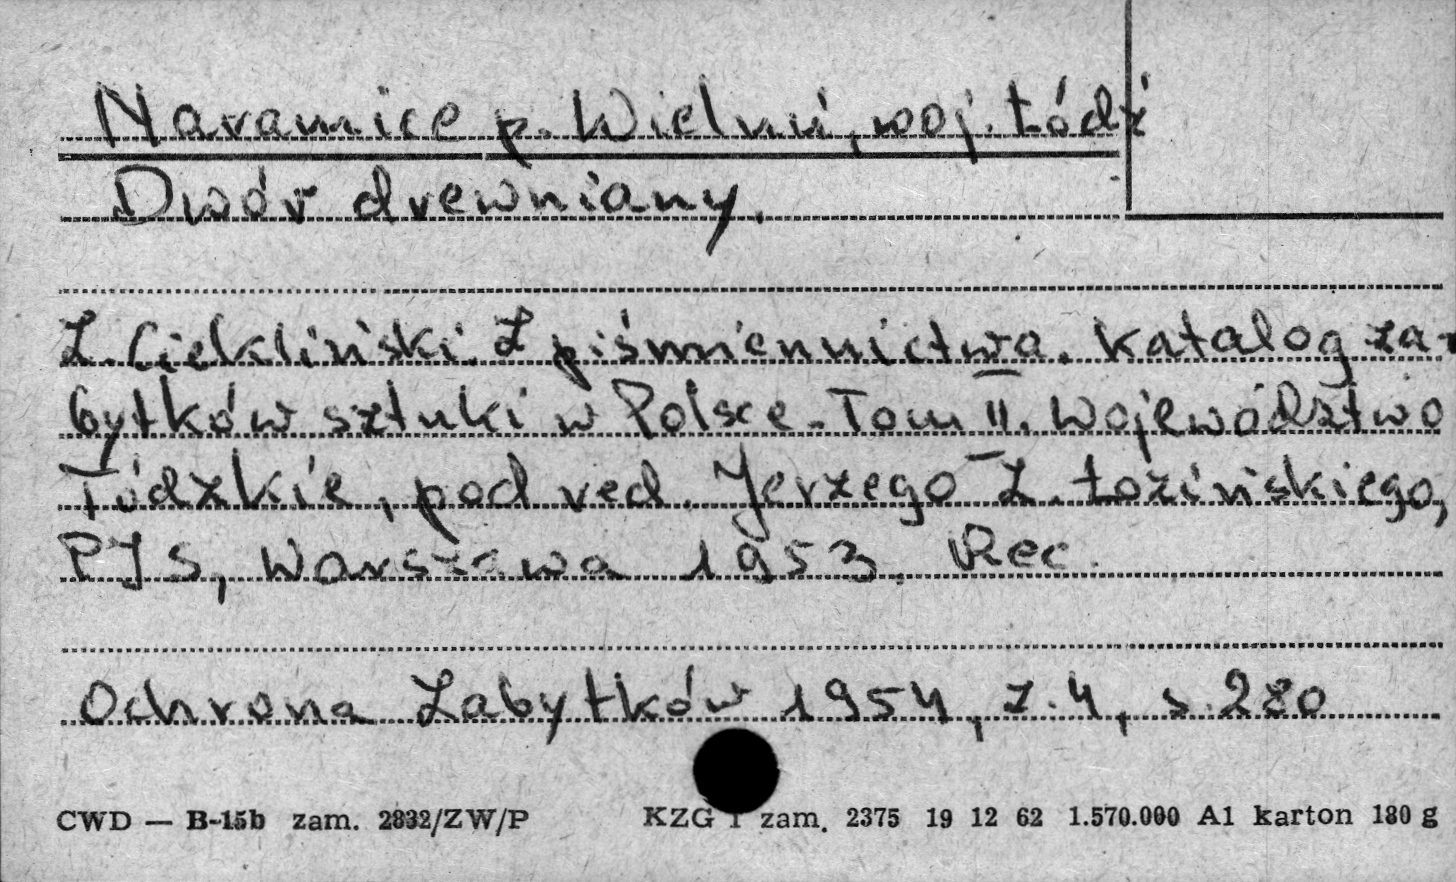 Naramice p. Wieluń, woj. Łódź
Dwór drewniany.
Z. Ciekliński. Z piśmiennictwa. Katalog za-
bytków sztuki w Polsce. Tom II. Województwo
Łódzkie, pod red. Jerzego Z. Łozińskiego,
PIS, Warszawa 1953. Rec.
Ochrona Zabytków 1954, z. 4, s. 280
CWD — B-15b zam. 2832/ZW/P KZG 1 zam. 2375 19 12 62 1.570.000 A1 karton 180 g